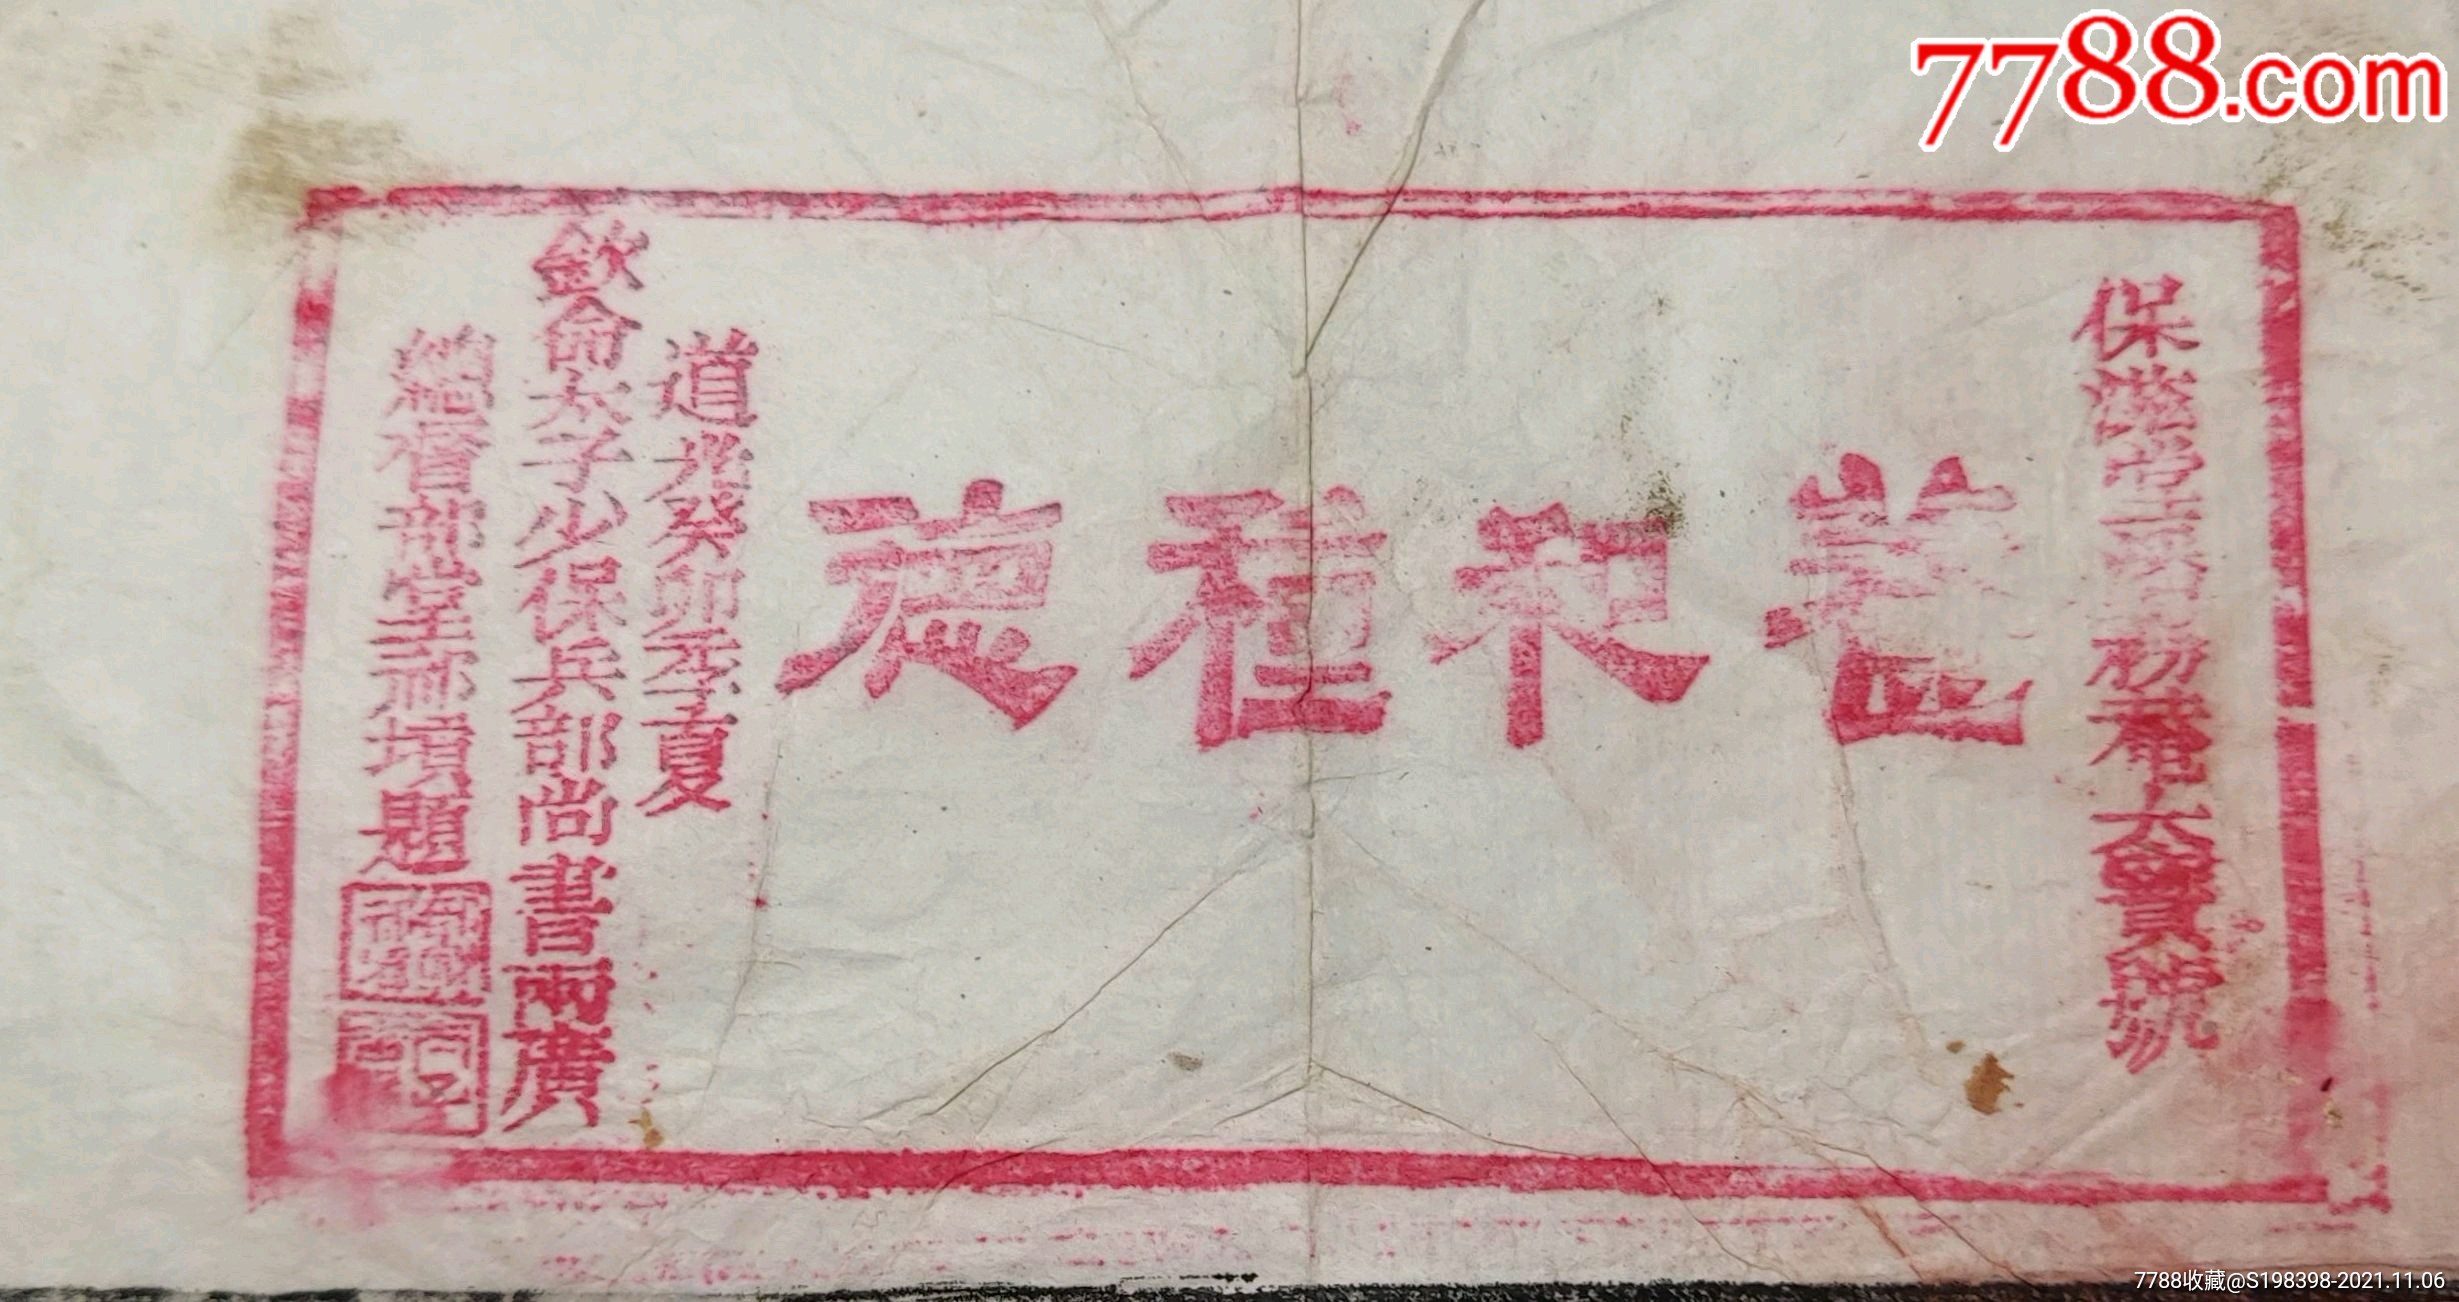 7788.com
保滋堂務菴大寶號
和種德
道光癸卯季夏
欽命太子少保兵部尚書兩廣
總督部堂祁𡎴題
7788收藏@S198398-2021.11.06